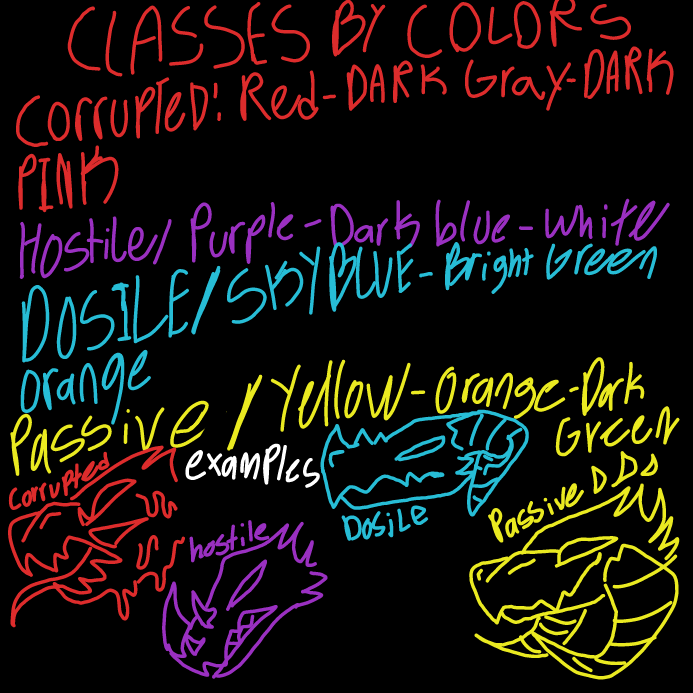 CLASSES BY COLORS
CORRUPTED: Red-DARK Gray-DARK
PINK
Hostile/ Purple-Dark blue-white
DOSILE/SKYBLUE-Bright Green
orange
Passive/Yellow-orange-Dark
Green
examples
corrupted
DOSILE
Passive
hostile